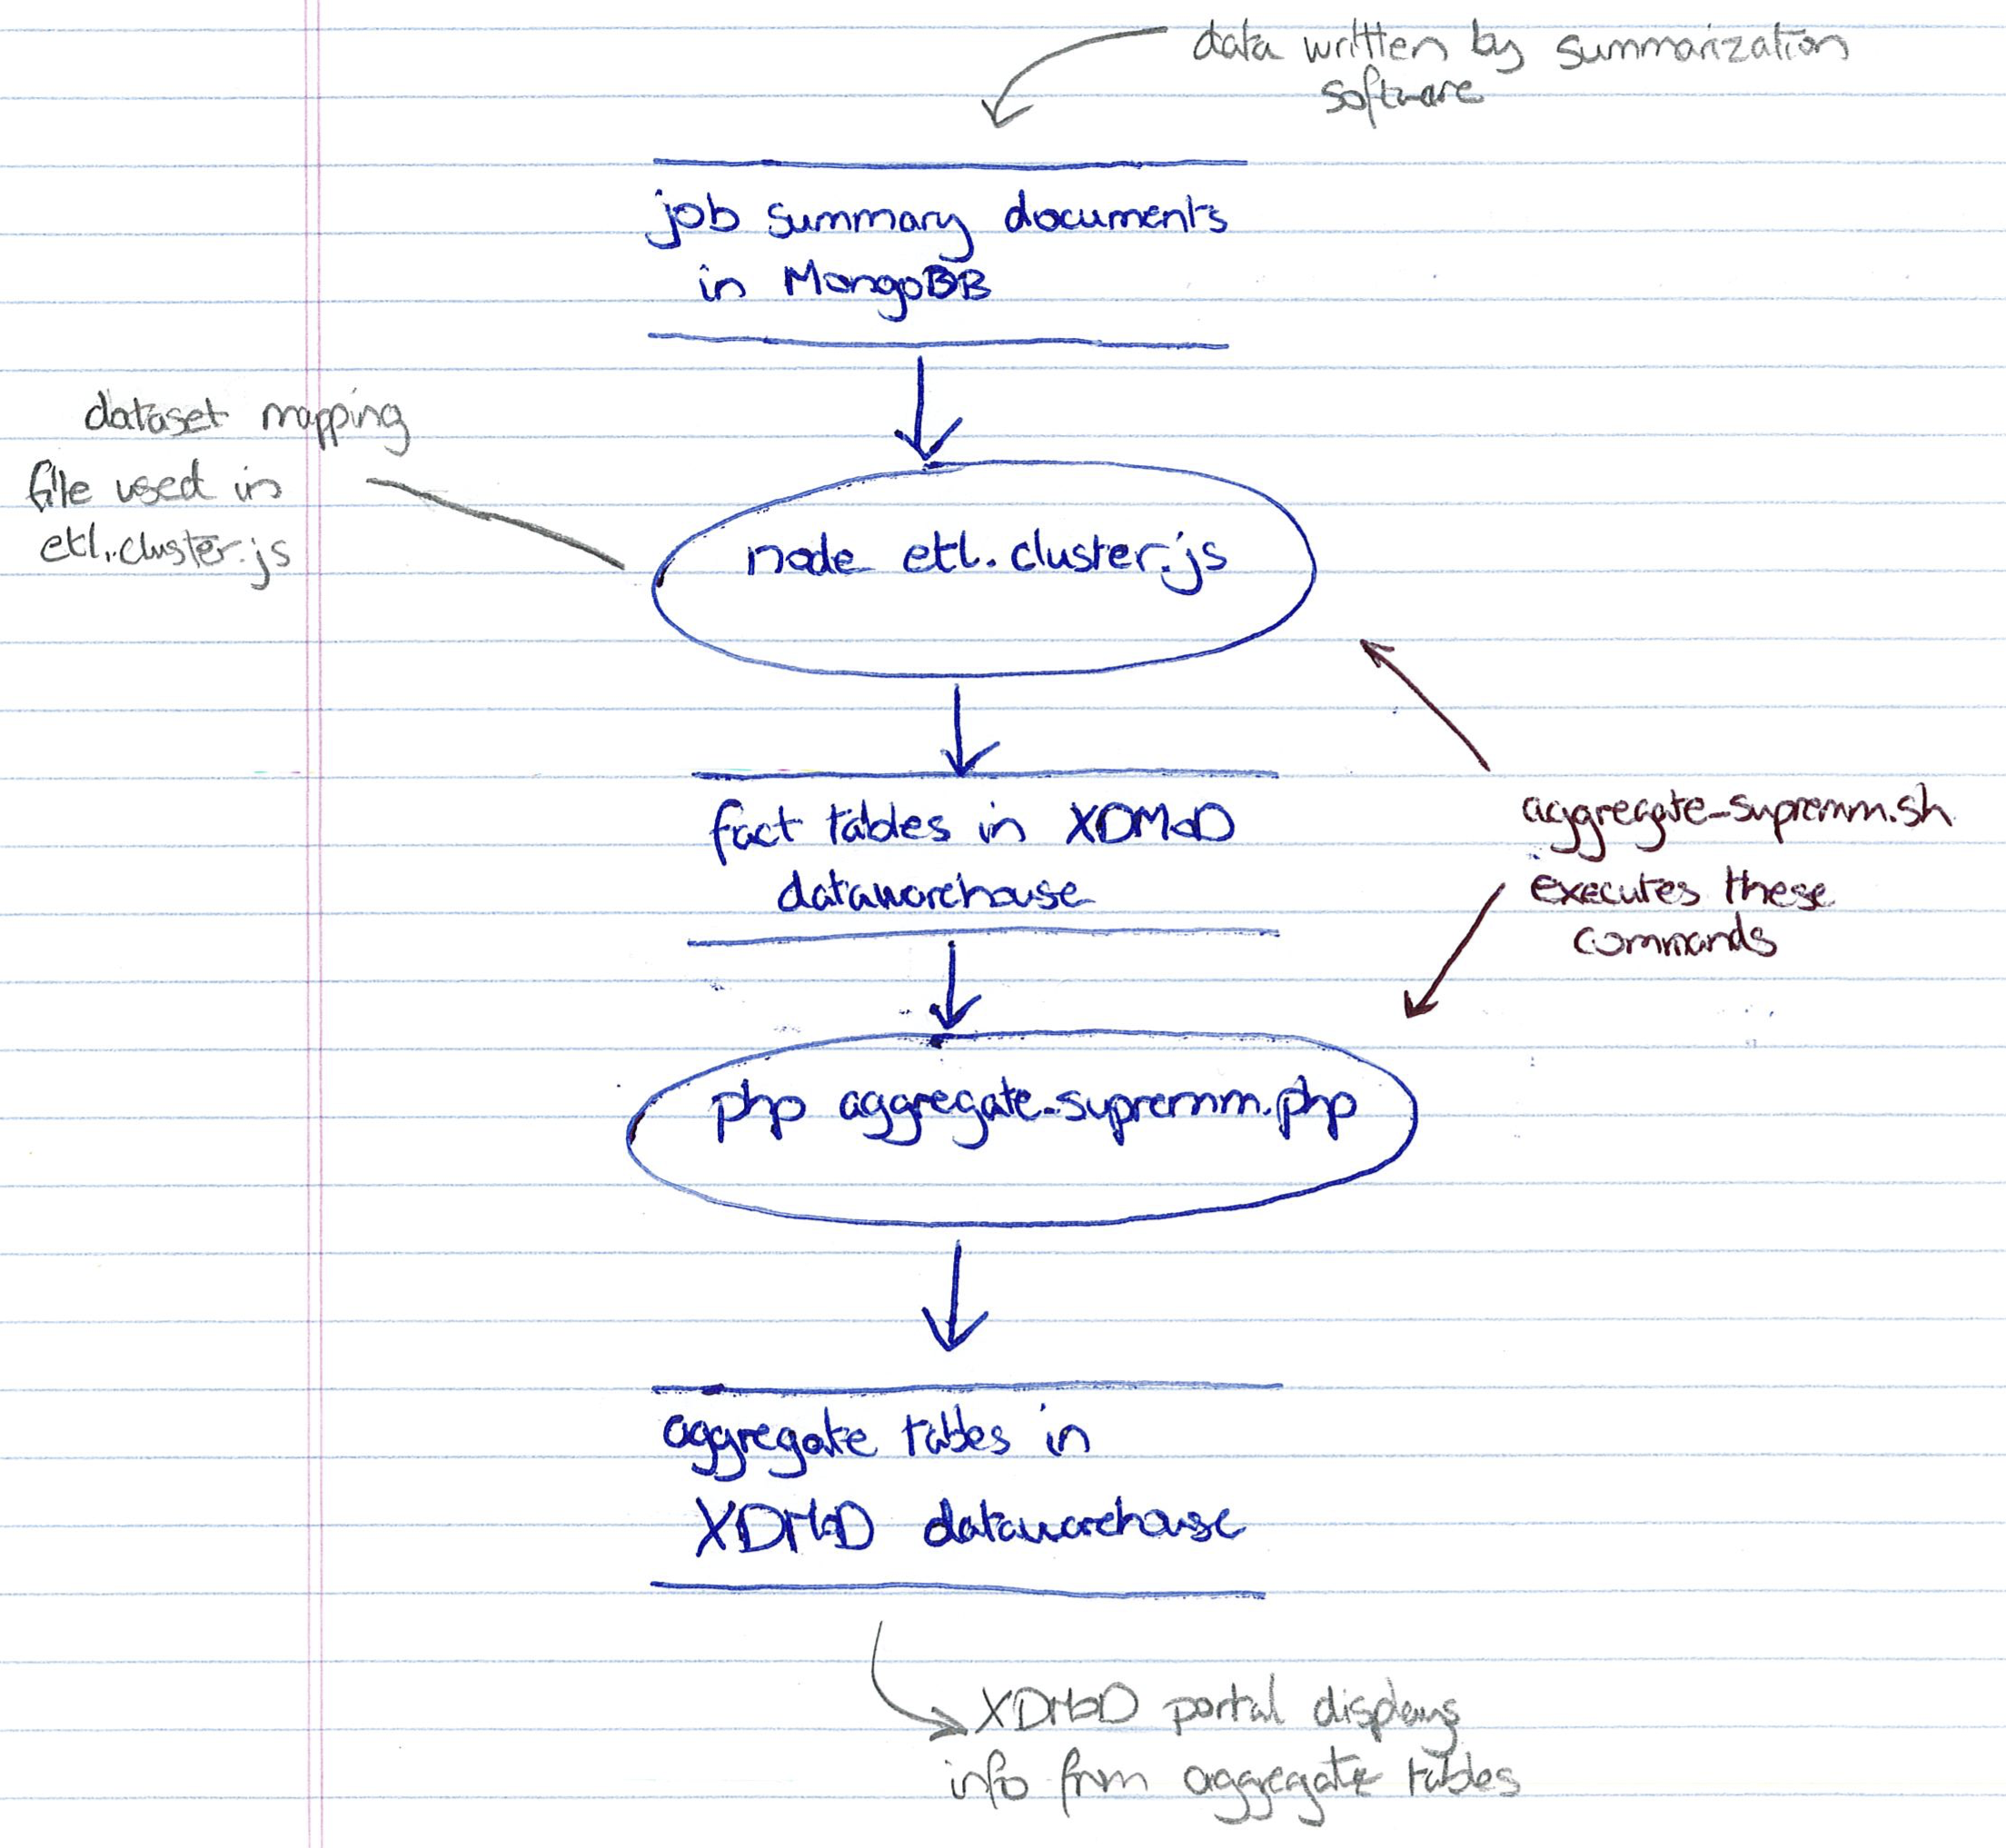 data written by summarization
software
job summary documents
in MongoDB
dataset mapping
file used in
etl.cluster.js
node etl.cluster.js
fact tables in XDMoD
datawarehouse
aggregate-supremm.sh
executes these
commands
php aggregate-supremm.php
aggregate tables in
XDMoD datawarehouse
XDMoD portal displays
info from aggregate tables